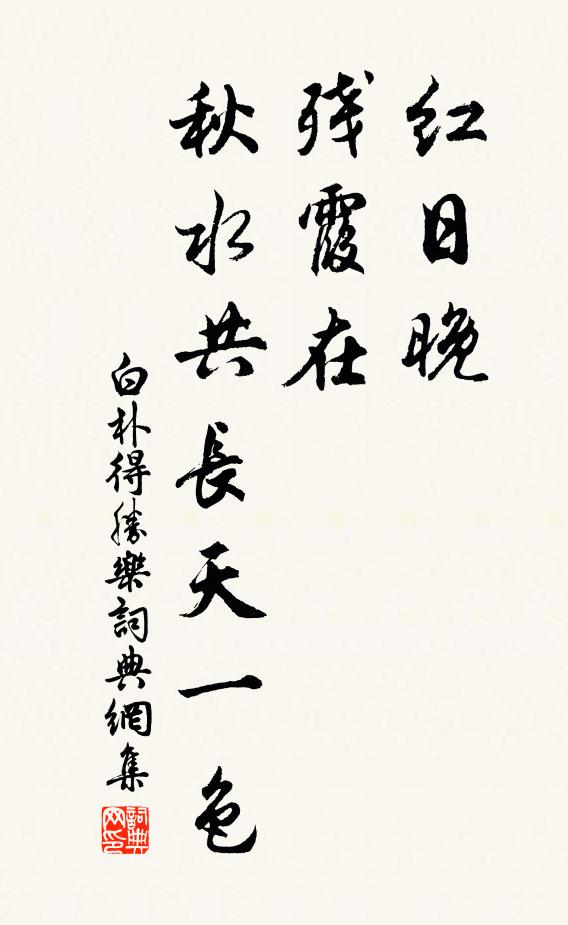 红日晚
残霞在
秋水共長天一色
白朴得勝樂詞典網集
詞典
网印